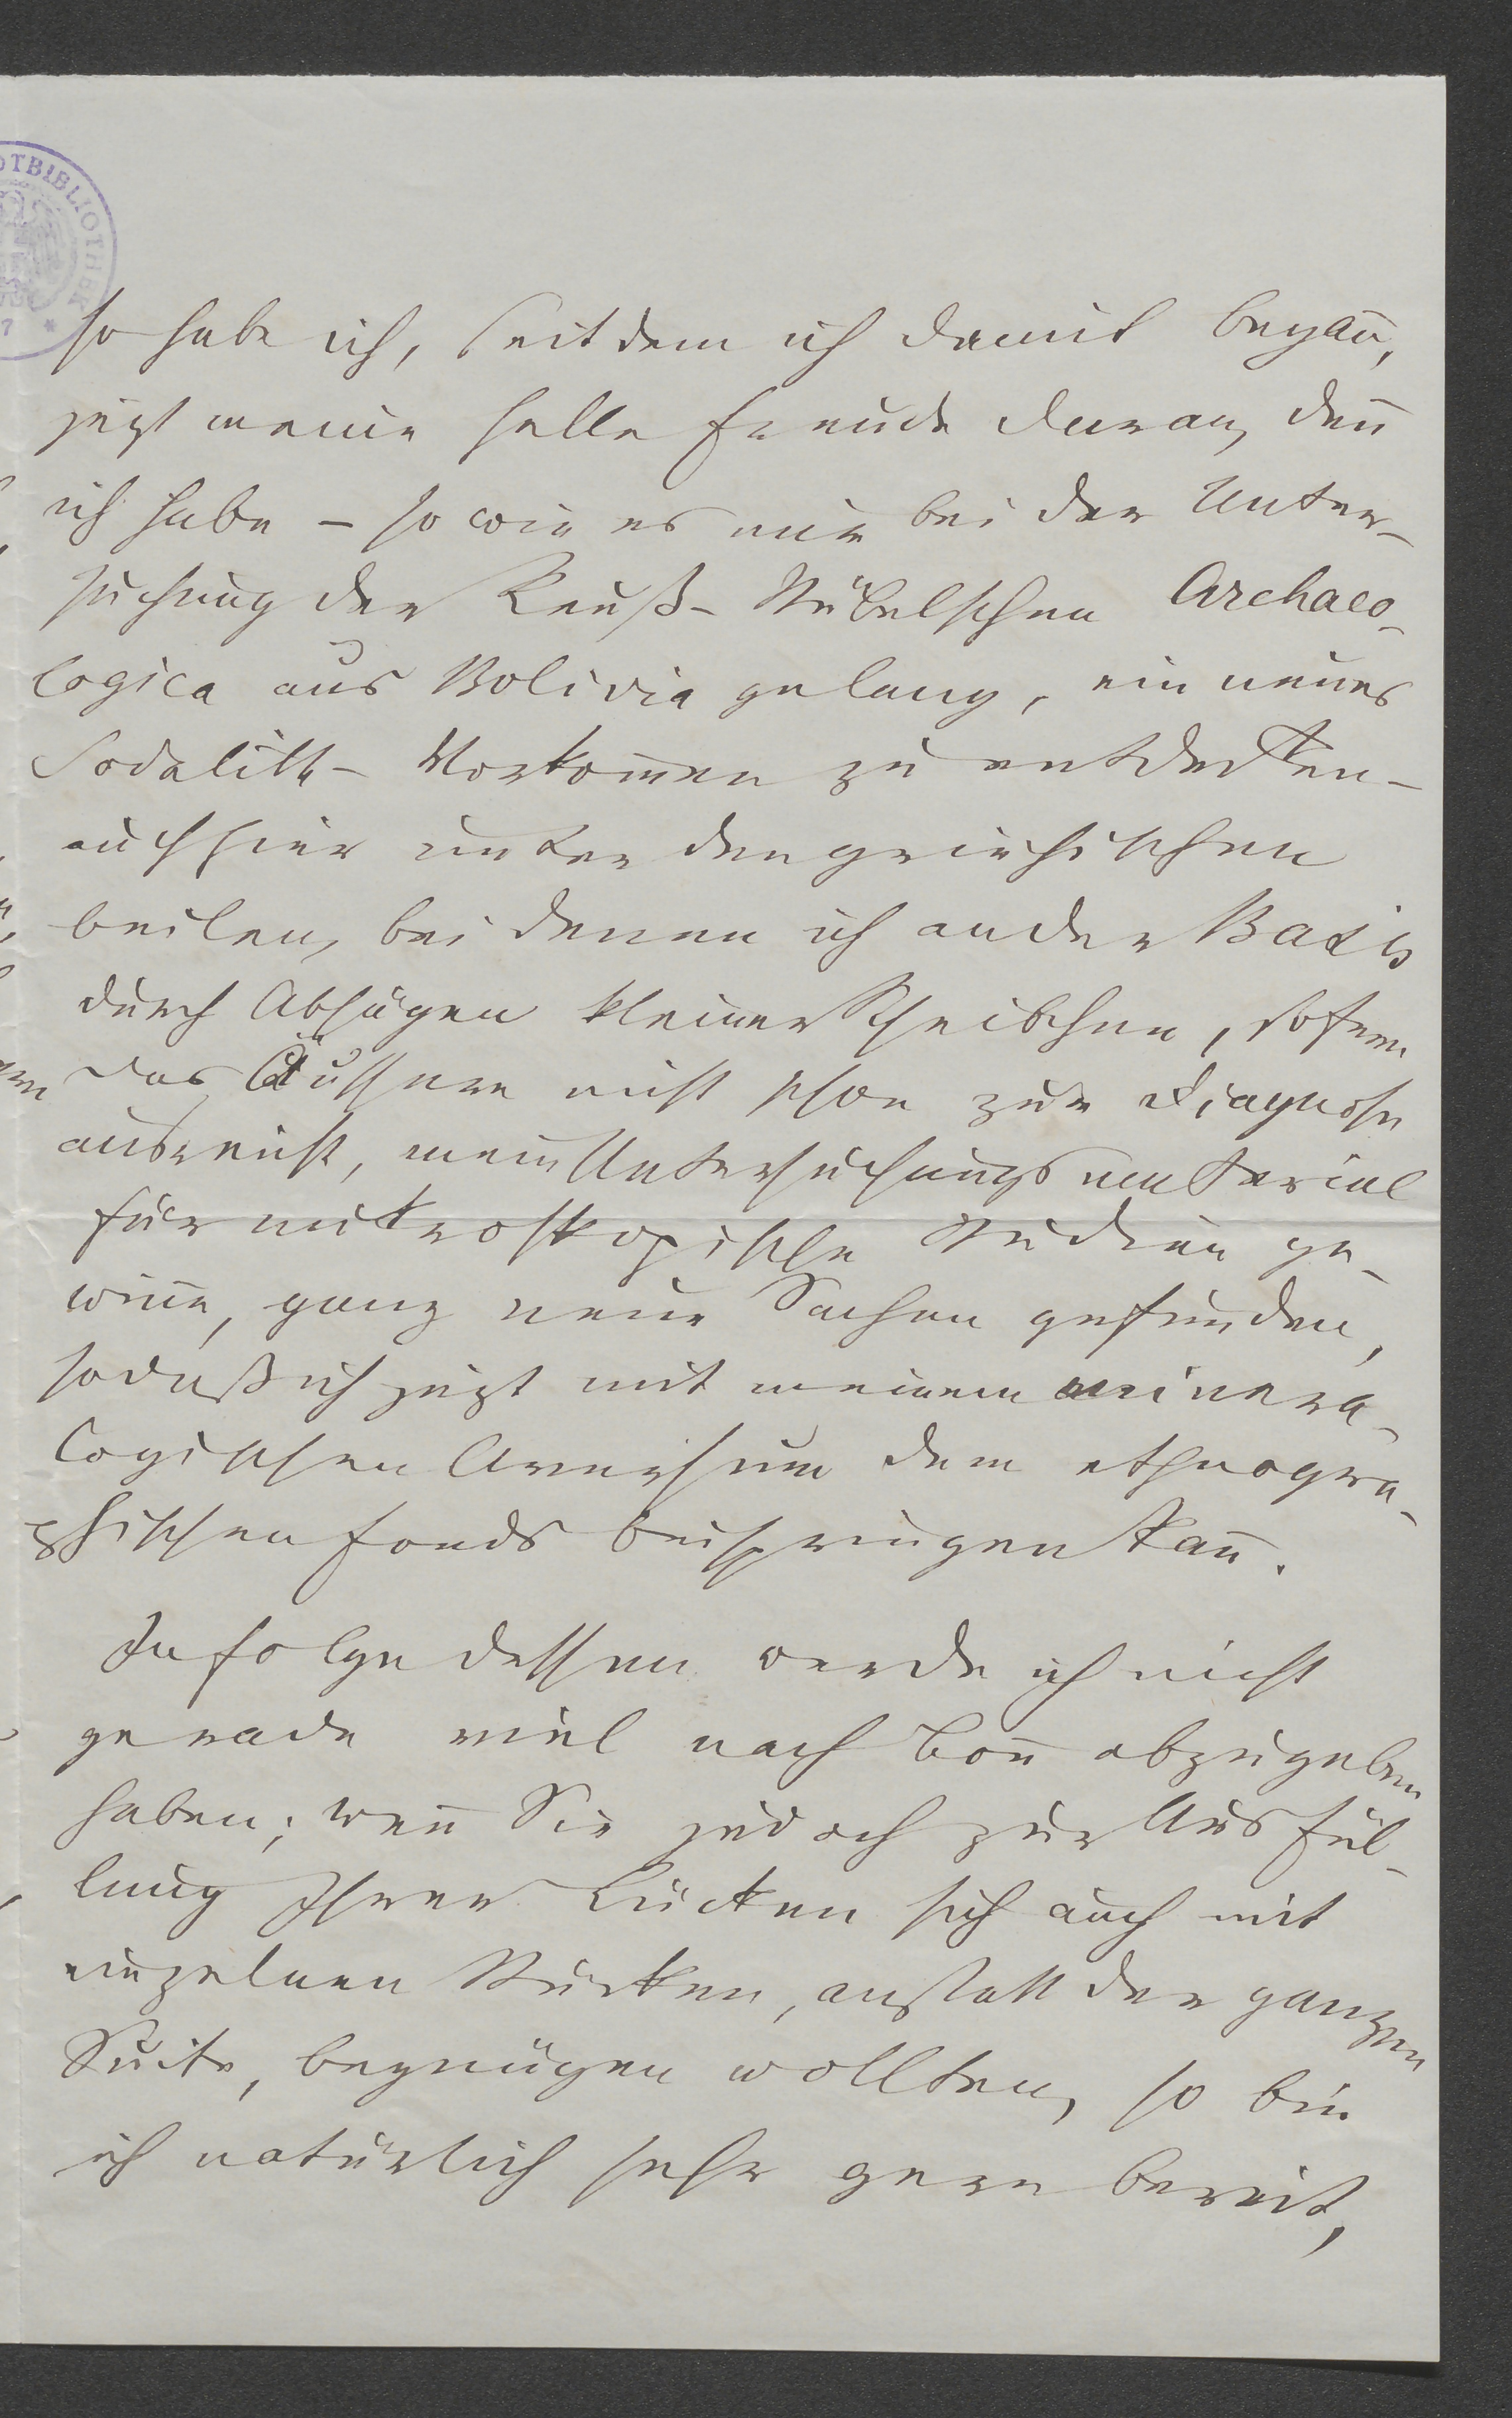 OTBIBLIOTHEK *
7
so habe ich, seitdem ich damit began̄,
jezt meine helle Freude daran, den̄
ich habe – so wie es mir bei der Unter-
suchung der Reuß-Stübelschen Archaeo-
logica aus Bolivia gelang, ein neues
Sodalith-Vorkom̄en zu entdecken –
auch hier unter den griechischen
beilen, bei denen ich an der Basis
durch Absägen kleiner Scheibchen, sofern
das Äussere nicht schon zur Diagnose
ausreicht, mein Untersuchungsmaterial
für mikroskopische Studien ge-
win̄e, ganz neue Sachen gefunden,
sodaß ich jezt mit meinem minera-
logischen Aversum dem ethnogra-
phischen Fonds beispringen kan̄.
Infolge dessen werde ich nicht
gerade viel nach Bon̄ abzugeben
haben; wen̄ Sie jedoch zur Ausfül-
lung Ihrer Lücken sich auch mit
einzelnen Stücken, anstatt der ganzen
Suite, begnügen wollten, so bin
ich natürlich sehr gern bereit,